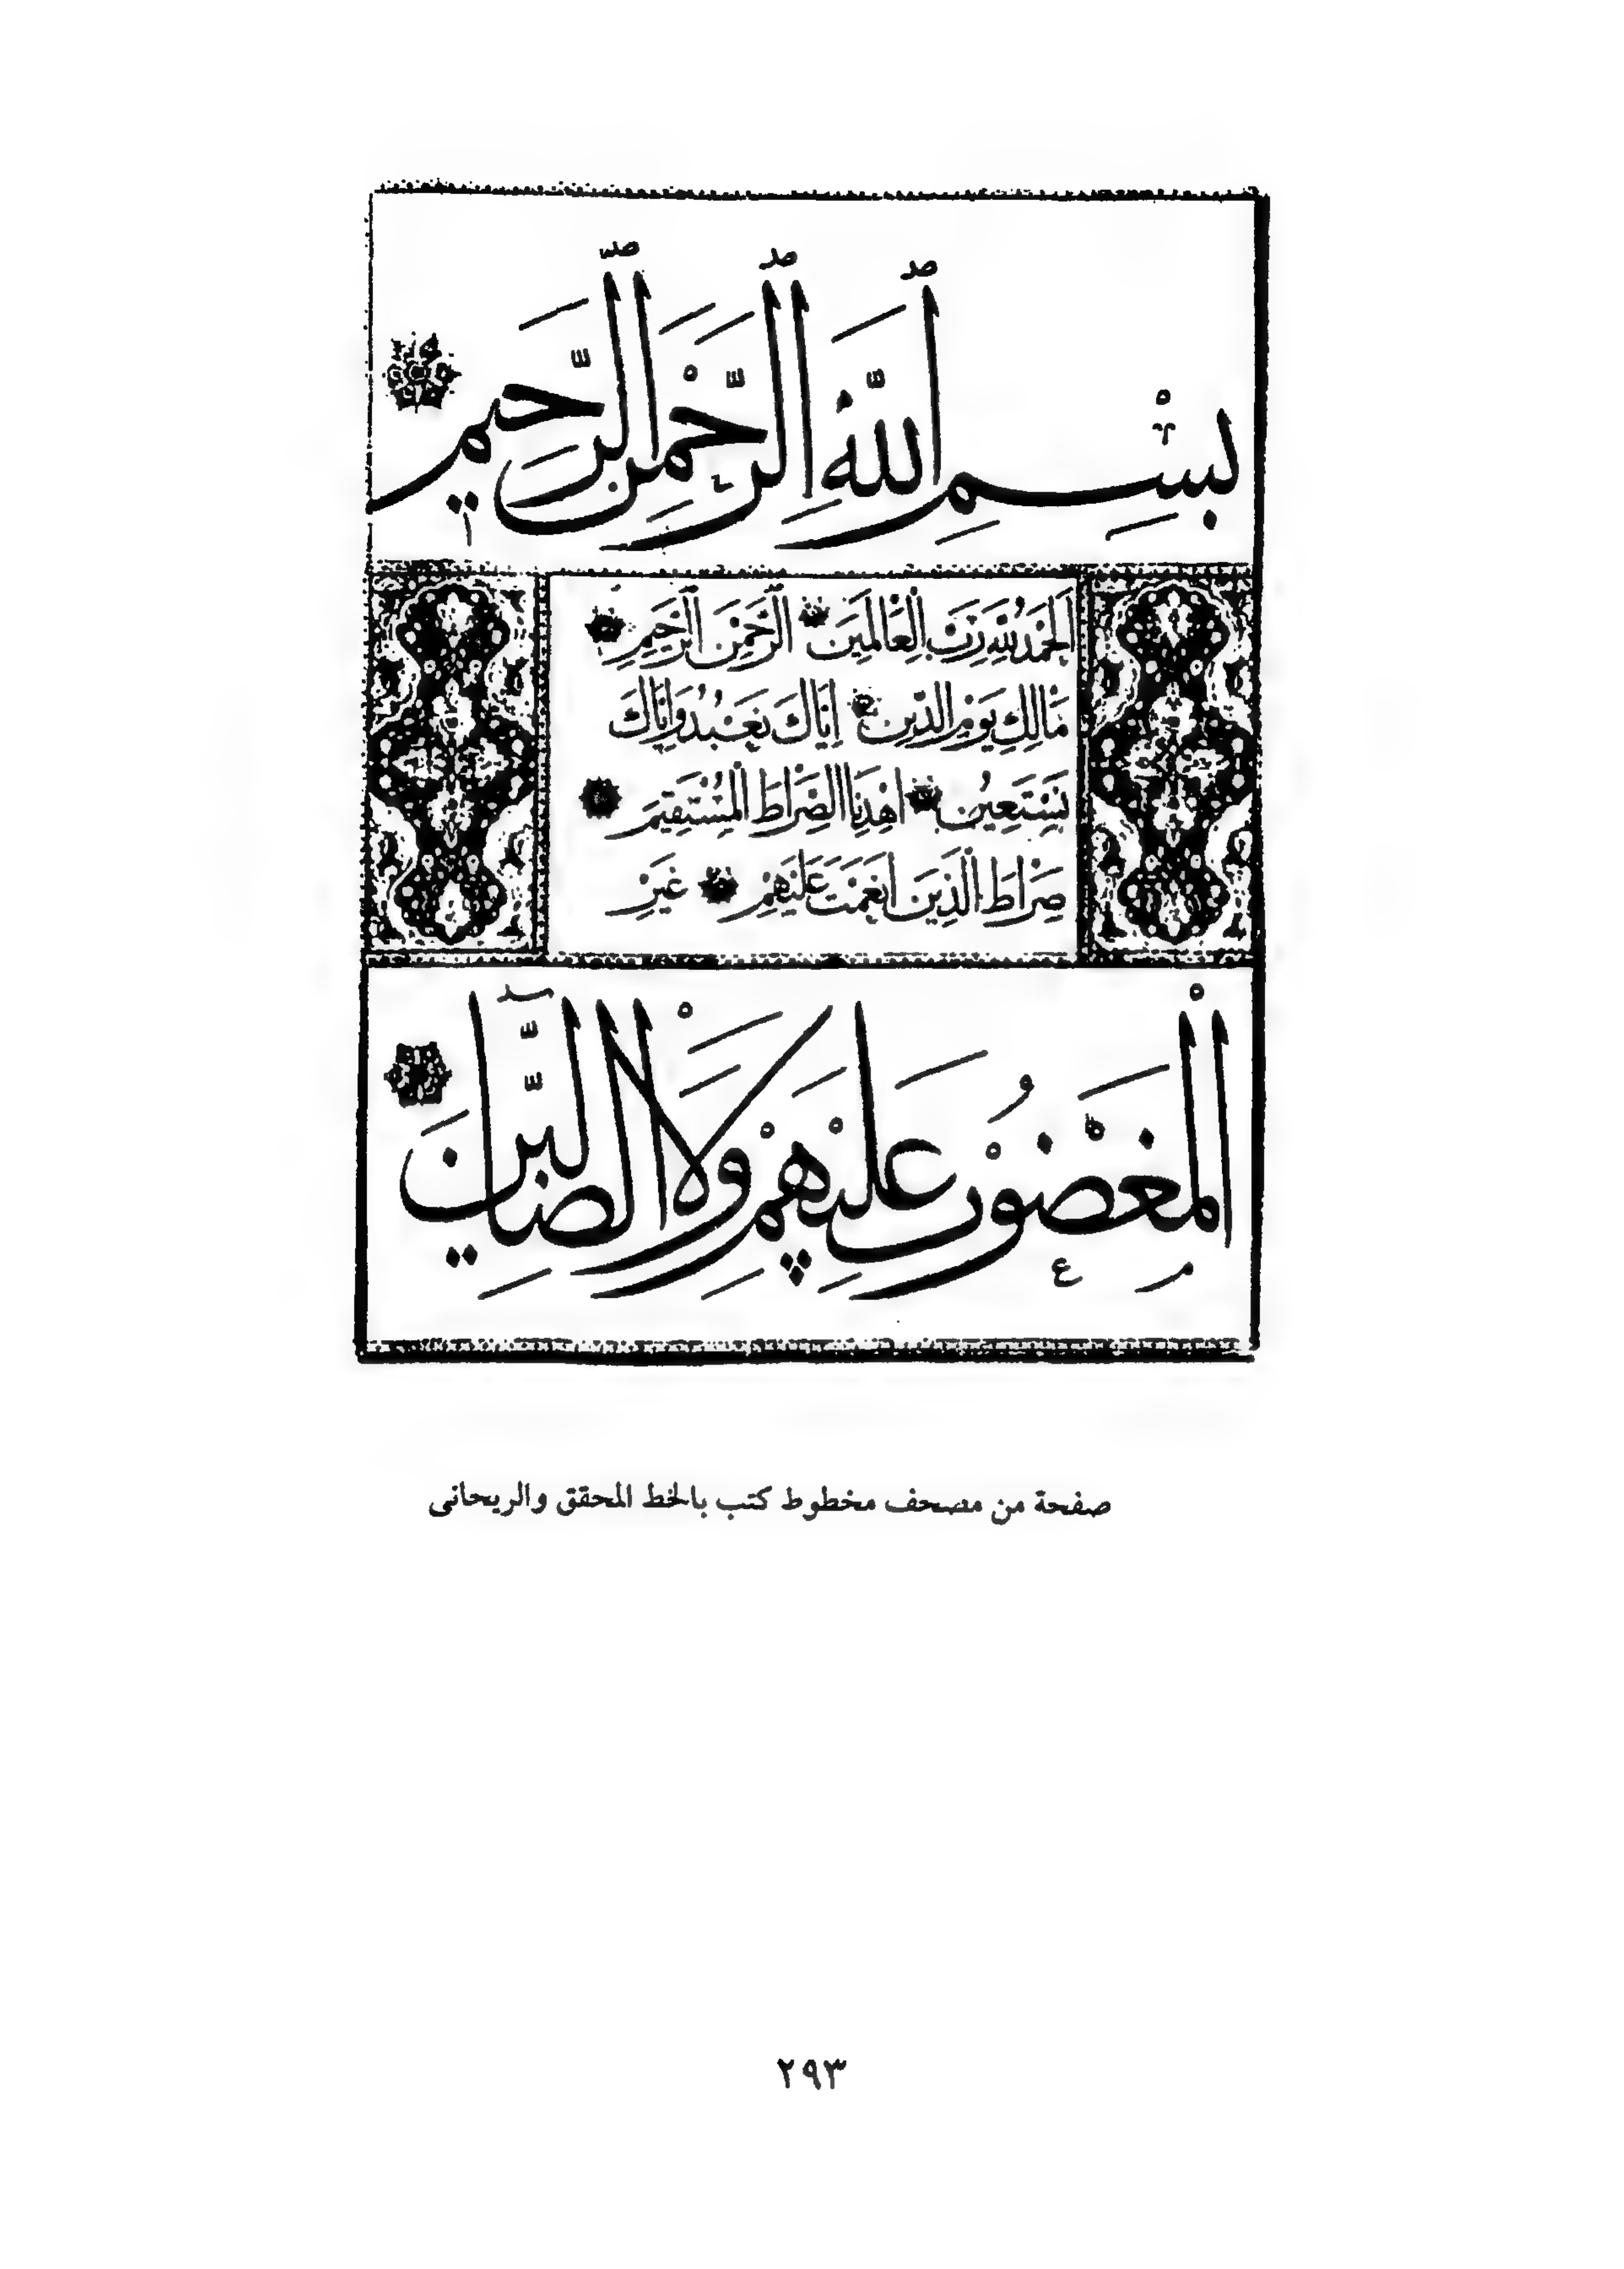 بِسْمِ اللَّهِ الرَّحْمَنِ الرَّحِيمِ
الْحَمْدُ لِلَّهِ رَبِّ الْعَالَمِينَ الرَّحْمَنِ الرَّحِيمِ
مَالِكِ يَوْمِ الدِّينِ إِيَّاكَ نَعْبُدُ وَإِيَّاكَ
نَسْتَعِينُ اهْدِنَا الصِّرَاطَ الْمُسْتَقِيمَ
صِرَاطَ الَّذِينَ أَنْعَمْتَ عَلَيْهِمْ غَيْرِ
الْمَغْضُوبِ عَلَيْهِمْ وَلَا الضَّالِّينَ
صفحة من مصحف مخطوط كتب بالخط المحقق والريحانى
٢٩٣